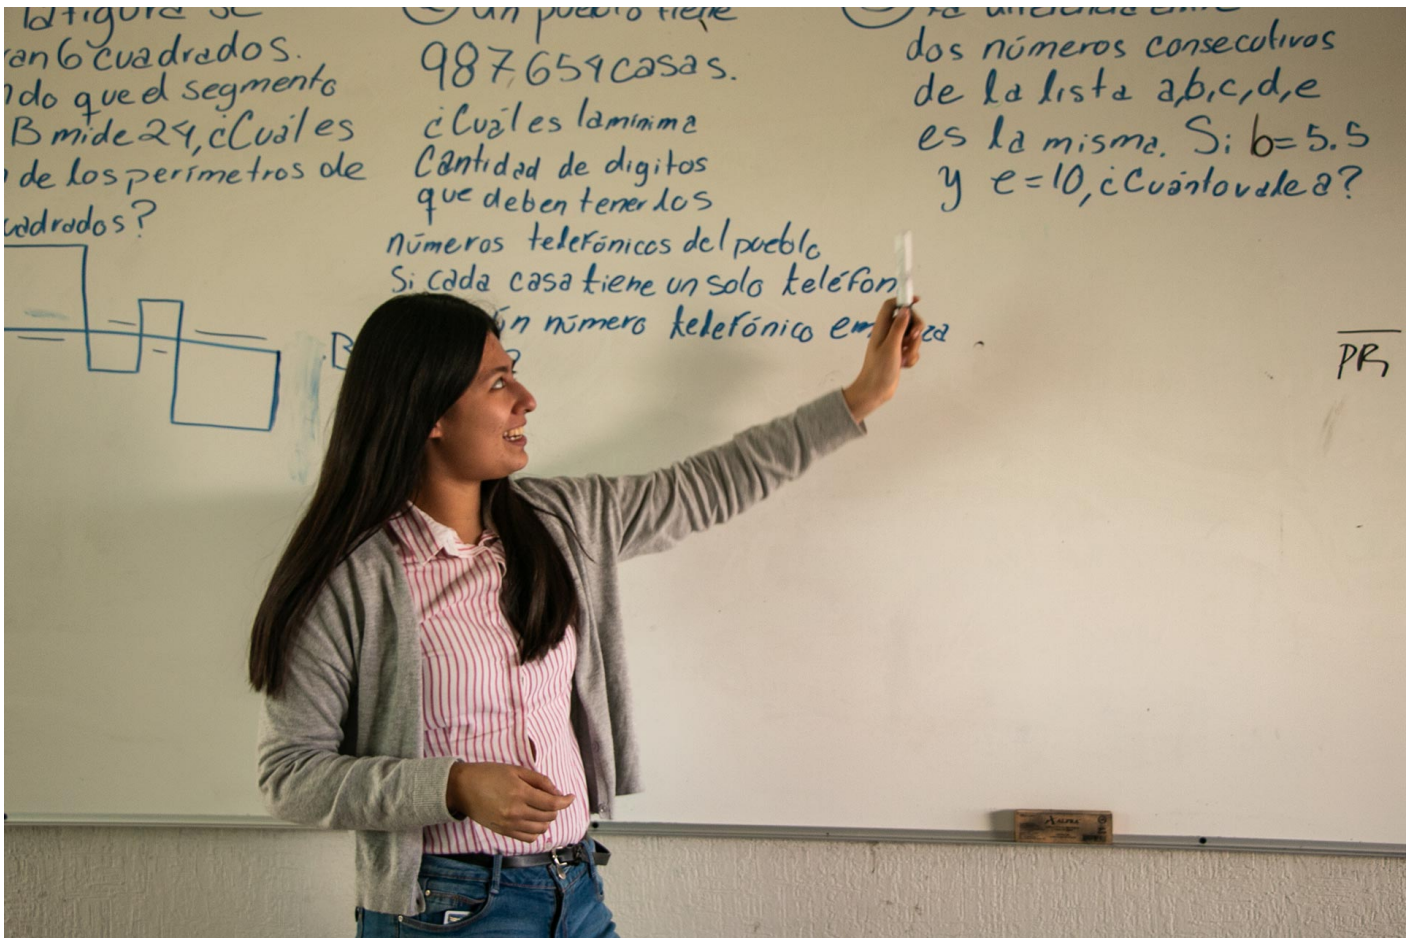 la figura se
an 6 cuadrados.
ndo que el segmento
B mide 24, ¿Cuál es
de los perímetros de
uadrados?
B
Un pueblo tiene
987,654 casas.
¿Cuál es la mínima
Cantidad de digitos
que deben tener los
números telefónicos del pueblo
Si cada casa tiene un solo teléfon
ún número telefónico em za
?
la diferencia entre
dos números consecutivos
de la lista a,b,c,d,e
es la misma. Si b=5.5
y e=10, ¿Cuánto vale a?
PR
ALPHA